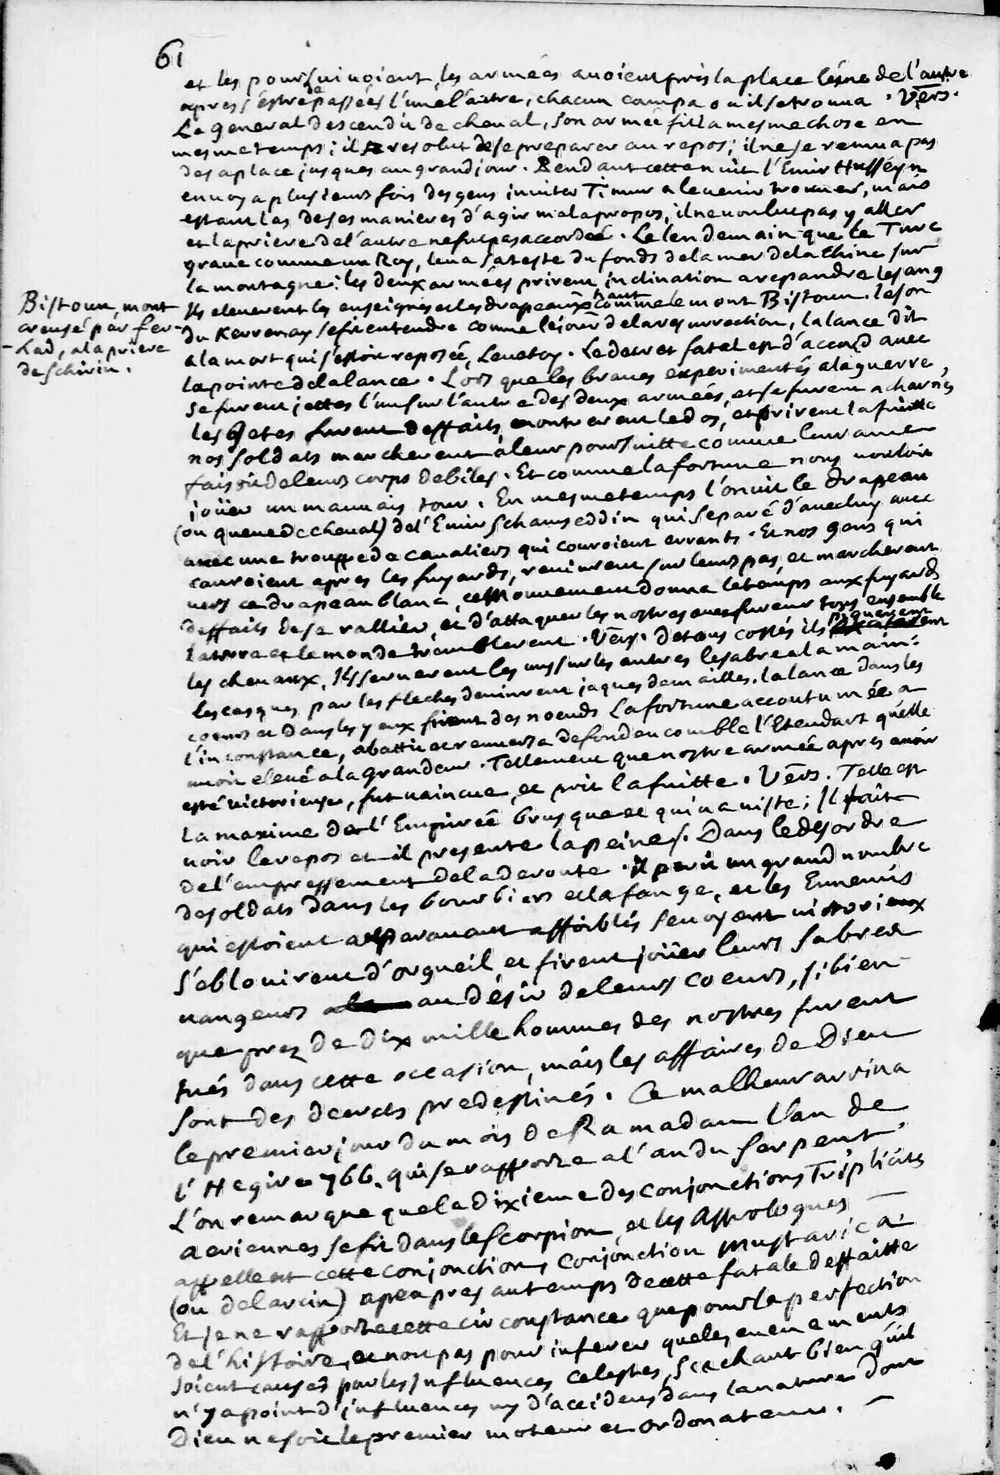 61
et les poursuivoient, les armées avoient pris la place l'une de l'autre
apres s'estre de passées l'une l'autre, chacun campa où il se trouva. Vers.
Le general descendit de cheval, son armée fit la mesme chose en
mesme temps; il se resolut de se preparer au repos; il ne se remua pas
de sa place jusques au grand jour. Pendant cette nuit l'Emir Hussëyn
envoya plusieurs fois des gens inviter Timur a le venir trouver, mais
estant las de ses manieres d'agir mal a propos, il ne voulut pas y aller
et la priere de l'autre ne fut pas accordeé. Le lendemain que le Turc
grave comme un Roy, leva sa teste du fonds de la mer de la Chine sur
la montagne: les deux armées prirent inclination a repandre le sang
Ils eleverent les enseignes et les drapeaux haut comme le mont Bistoun. le son
du Kerrenay se fit entendre comme le jour de la resurrection, la lance dit
a la mort qui s'estoit reposée, Leve toy. Le decret fatal est d'accord avec
la pointe de la lance. Lors que les braves experimentés a la guerre,
se furent jettes l'un sur l'autre des deux armées, et se furent acharnés
les Getes furent deffaits, montrerent le dos, et prirent la fuitte
nos soldats marcherent a leur poursuitte comme leur ame
faisoit de leurs corps debiles. Et comme la fortune nous vouloit
joüer un mauvais tour. En mesme temps l'on vit le drapeau
(ou queue de cheval) de l'Emir Schamseddin qui separé d'avec luy avec
avec une trouppe de cavaliers qui couroient errants. Et nos gens qui
couroient apres les fuyards, revinrent sur leurs pas, et marcherent
vers ce drapeau blanc, ce mouvement donna le temps aux fuyards
deffaits de se rallier, et d'attaquer les nostres avec fureur tous ensemble
la terre et le monde tremblerent. Vers. de tous costés ils piquerent
les chevaux. Ils leverent les uns sur les autres le sabre a la main:
les casques par les fleches devinrent jaques de mailles. la lance dans les
coeurs et dans les yeux firent des noeuds La fortune accoutumée a
l'inconstance, abattit et renversa de fond en comble l'Etendart qu'elle
avoit elevé a la grandeur. Tellement que nostre armée apres avoir
esté victorieuse, fut vaincue, et prit la fuitte. Vers. Telle est
la maxime de l'Empireé brusque et qui va viste; Il fait
voir le repos et il presente la peine. Dans le desordre
de l'empressement de la deroute. il perit un grand nombre
de soldats dans les bourbiers et la fange, et les Ennemis
qui estoient auparavant affoiblis se voyant victorieux
s'eblouirent d'orgueil, et firent joüer leurs sabres
vangeurs au désir de leurs coeurs, si bien
que prez de dix mille hommes des nostres furent
tués dans cette occasion, mais les affaires de Dieu
sont des decrets predestinés. Ce malheur arriva
le premier jour du mois de Ramadan l'an de
l'Hegire 766. qui se rapporte a l'an du serpent.
L'on remarque que la dixieme des conjonctions Triplicités
aeriennes se fit dans le Scorpion, et les Astrologues
appellent cette conjonction, Conjonction Mustarica
(ou de larcin) a peu pres au temps de cette fatale deffaitte
Et je ne rapporte cette circonstance que pour la perfection
de l'histoire, et non pas pour inferer que les evenements
soient causés par les Influences celestes, sçachant bien qu'il
n'y a point d'influences ny d'accidens dans la nature dont
Dieu ne soit le premier moteur et ordonateur.
Bistoun, mont
creusé par fer-
-had, a la priere
de schirin.